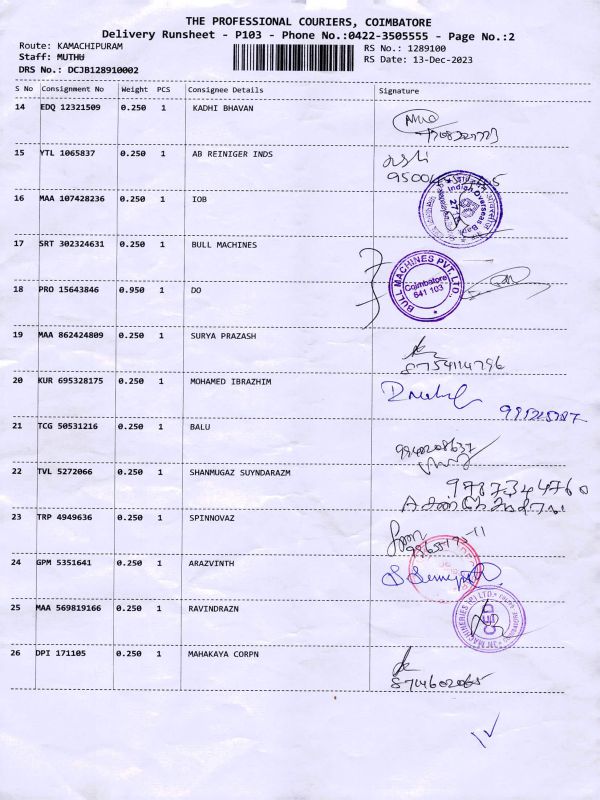 THE PROFESSIONAL COURIERS, COIMBATORE
Delivery Runsheet - P103 - Phone No.:0422-3505555 - Page No.:2
Route: KAMACHIPURAM RS No.: 1289100
Staff: MUTHU RS Date: 13-Dec-2023
DRS No.: DCJB128910002
S No Consignment No Weight PCS Consignee Details Signature
14 EDQ 12321509 0.250 1 KADHI BHAVAN
15 YTL 1065837 0.250 1 AB REINIGER INDS
16 MAA 107428236 0.250 1 IOB
Indian Overseas Bank
17 SRT 302324631 0.250 1 BULL MACHINES
BULL MACHINES PVT. LTD.
Coimbatore
641 103
18 PRO 15643846 0.950 1 DO
19 MAA 862424809 0.250 1 SURYA PRAZASH
8754114796
20 KUR 695328175 0.250 1 MOHAMED IBRAZHIM
21 TCG 50531216 0.250 1 BALU
22 TVL 5272066 0.250 1 SHANMUGAZ SUYNDARAZM
9787344760
23 TRP 4949636 0.250 1 SPINNOVAZ
24 GPM 5351641 0.250 1 ARAZVINTH
25 MAA 569819166 0.250 1 RAVINDRAZN
26 DPI 171105 0.250 1 MAHAKAYA CORPN